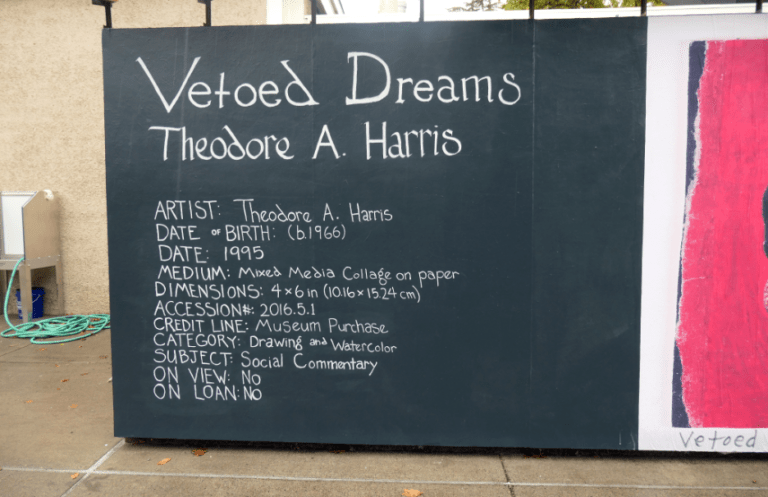 Vetoed Dreams
Theodore A. Harris
ARTIST: Theodore A. Harris
DATE OF BIRTH: (b.1966)
DATE: 1995
MEDIUM: Mixed Media Collage on paper
DIMENSIONS: 4 x 6 in (10.16 x 15.24 cm)
ACCESSION#: 2016.5.1
CREDIT LINE: Museum Purchase
CATEGORY: Drawing and Watercolor
SUBJECT: Social Commentary
ON VIEW: No
ON LOAN: NO
Vetoed